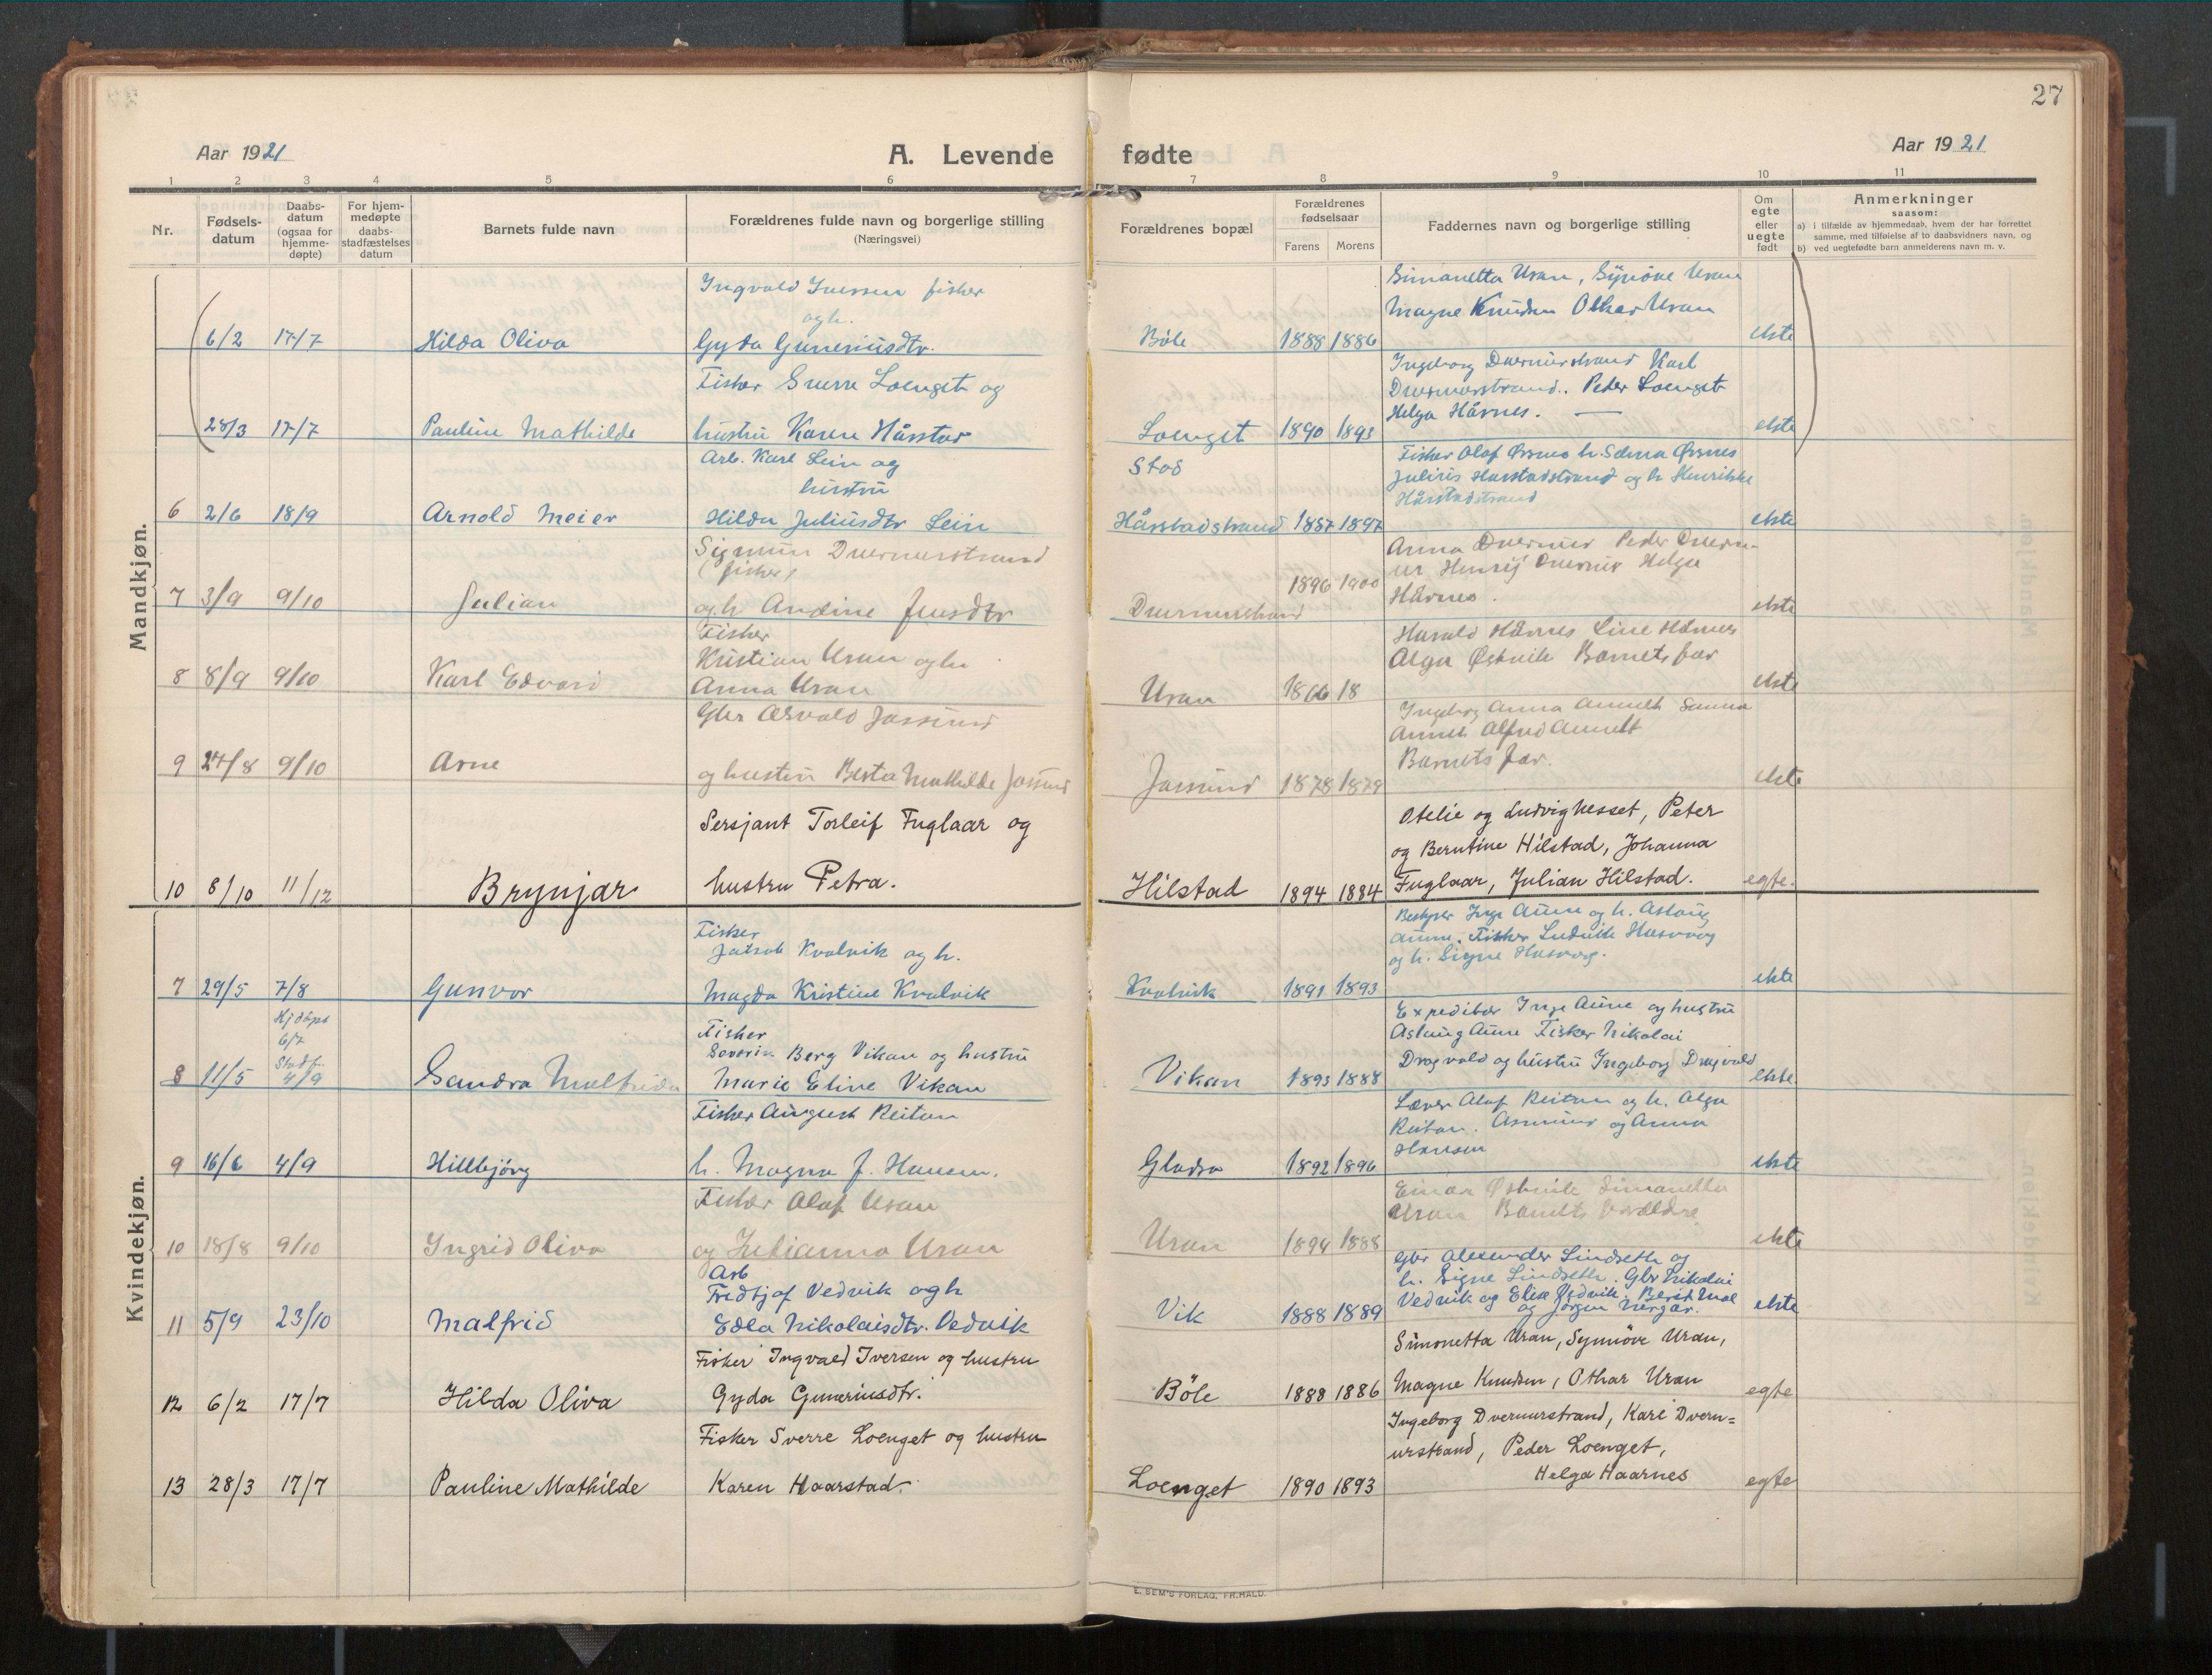 27
Aar 1921
A. Levende fødte
Aar 1921
1 2 3 4 5 6 7 8 9 10 11
Nr.
Fødsels-
datum
Daabs-
datum
(ogsaa for
hjemme-
døpte)
For hjem-
medøpte
daabs-
stadfæstelses
datum
Barnets fulde navn
Forældrenes fulde navn og borgerlige stilling
(Næringsvei)
Forældrenes bopæl
Forældrenes
fødselsaar
Farens Morens
Faddernes navn og borgerlige stilling
Om
egte
eller
uegte
født
Anmerkninger
saasom:
a) i tilfælde av hjemmedaab, hvem der har forrettet
samme, med tilføielse af to daabsvidners navn, og
b) ved uegtefødte barn anmelderens navn m. v.
Mandkjøn.
Ingvald Iversen fisker
og h.
6/2 17/7 Hilda Oliva Gyda Guneriusdtr.
Bøle 1888 1886
Simanetta Uran, Synøve Uran
Magne Knudsen Othar Uran
ekte
Fisker Sverre Loenget og
28/3 17/7 Pauline Mathilde hustru Karen Hårstad
Loenget 1890 1893
Ingeborg Duernurstrand Karl
Duernurstrand. Peder Loenget
Helga Hårnes.
ekte
Arb. Karl Lein og
hustru
6 2/6 18/9 Arnold Meier Hilda Juliusdtr Lein
Stod
Hårstadstrand 1887 1897
Fisker Olaf Ørsnes h. Selma Ørsnes
Julius Harstadstrand og h Henrikke
Hårstadstrand
ekte
Sigmun Duernurstrand
(fisker)
7 3/9 9/10 Julian og h Andine Jensdtr
Duernurstrand 1896 1900
Anna Duernur Peder Duern-
ur Henrij Duernur Helga
Hårnes.
ekte
Fisker
Kristian Uran og hu
8 8/9 9/10 Karl Edvard Anna Uran
Uran 1866 18
Harald Hårnes Line Hårnes
Alga Østvik Barnets far
ekte
Gbr Osvald Jossund
9 27/8 9/10 Arne og hustru Berta Mathilde Jossund
Jossund 1878 1879
Ingeborg Anna Sanna
Alfred
Barnets far.
ekte
Sersjant Torleif Fuglaar og
10 8/10 11/12 Brynjar hustru Petra.
Hilstad 1894 1884
Otelie og Ludvig Nesset, Peter
og Berntine Hilstad, Johanna
Fuglaar, Julian Hilstad.
egte.
Kvindekjøn.
Fisker
Jakob Kvalvik og h.
7 29/5 7/8 Gunvor Magda Kristine Kvalvik
Kvalvik 1891 1893
Bestyrer Inge Aune og h. Aslaug
Aune. Fisker Ludvik Husvaag
og h. Signe Husvaag.
ekte
Hjdøpt
6/7
Stadf.
Fisker
Severin Berg Vikan og hustru
8 11/5 4/9 Sandra Malfrida Marie Eline Vikan
Vikan 1893 1888
Expeditør Inge Aune og hustru
Aslaug Aune Fisker Nikolai
Dragvold og hustru Ingeborg Dragvold
ekte.
Fisker August Reitan
9 16/6 4/9 Hillbjørg h. Magna J. Hansen.
Gladsø 1892 1896
Lærer Olaf Reitan og h. Alga
Reitan. Asmund og Anna
Hansen
ekte
Fisker Olaf Uran
10 18/8 9/10 Ingrid Oliva og Julianna Uran
Uran 1894 1888
Einar Østvik Simanetta
Uran Barnets forældre
ekte
Arb
Fredtjof Vedvik og h
11 5/9 23/10 Malfrid Edla Nikolaisdtr. Vedvik
Vik 1888 1889
Gbr Alexander Lindseth og
h. Signe Lindseth. Gbr Nikolai
Vedvik og Elise Vedvik. Berit Moe
og Jørgen Nergår.
ekte
Fisker Ingvald Iversen og hustru
12 6/2 17/7 Hilda Oliva Gyda Guneriusdtr.
Bøle 1888 1886
Simonetta Uran, Synnöve Uran,
Magne Knudsen, Othar Uran
egte
Fisker Sverre Loenget og hustru
13 28/3 17/7 Pauline Mathilde Karen Haarstad.
Loenget 1890 1893
Ingeborg Dvernurstrand, Kari Dvern=
urstrand, Peder Loenget,
Helga Haarnes
egte
E. SEM'S FORLAG, FR.HALD.